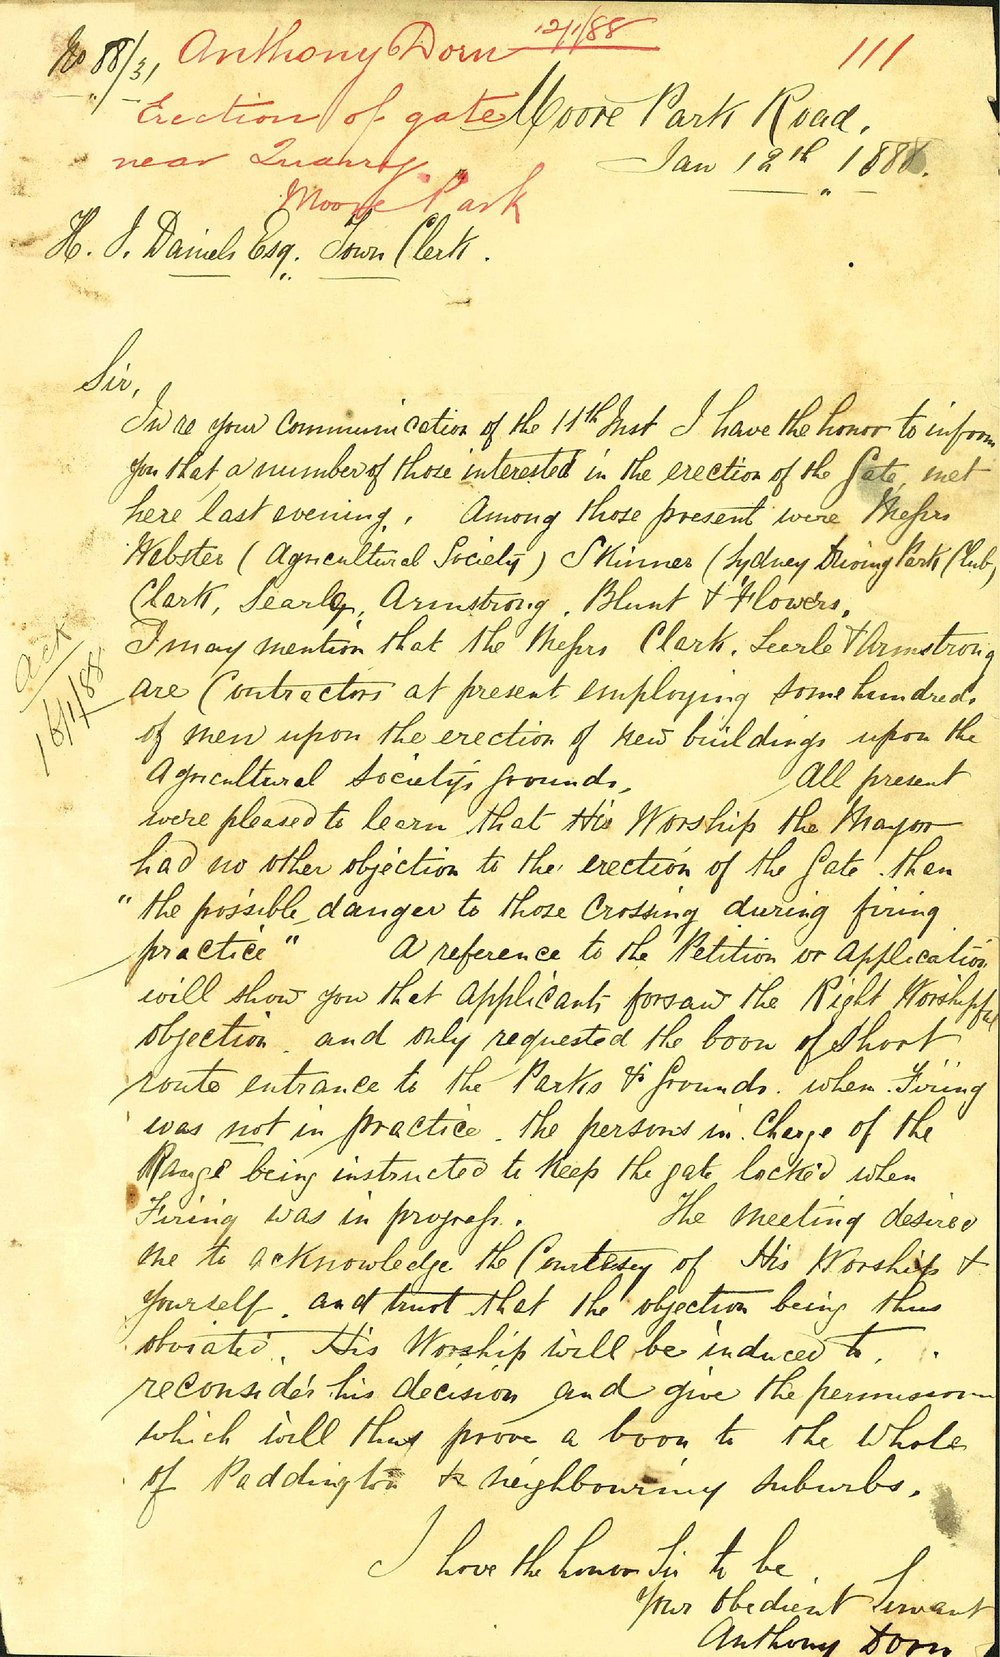 No 88/31
Anthony Dorn 12/1/88
111
Erection of gate
near Quarry
Moore Park
Moore Park Road,
Jan 12th 1888.
H. J. Daniels Esq. Town Clerk.
Sir,
In re your Communication of the 11th Inst I have the honor to inform
you that a number of those interested in the erection of the Gate, met
here last evening. Among those present were Messrs
Webster (Agricultural Society) Skinner (Sydney Driving Park Club,)
Clark, Searle, Armstrong, Blunt & Flowers.
I may mention that the Messrs Clark, Searle & Armstrong
are Contractors at present employing some hundreds
of men upon the erection of new buildings upon the
Agricultural Society's grounds. All present
were pleased to learn that His Worship the Mayor
had no other objection to the erection of the Gate than
"the possible danger to those Crossing during firing
practice" A reference to the Petition or application
will show you that applicants forsaw the Right Worshipful
objection and only requested the boon of short
route entrance to the Parks & Grounds when Firing
was not in practice, the persons in Charge of the
Range being instructed to keep the gate locked when
Firing was in progress. The meeting desired
me to acknowledge the Courtesey of His Worship &
yourself, and trust that the objection being thus
obviated, His Worship will be induced to
reconsider his decision and give the permission
which will thus prove a boon to the whole
of Paddington & neighbouring suburbs.
I have the honor Sir to be
Your obedient Servant
Anthony Dorn
Ack
16/1/88